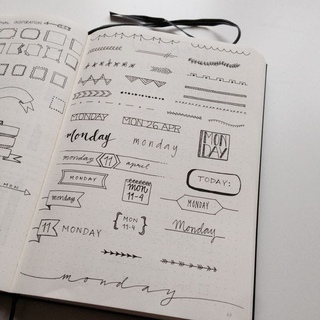 MONDAY
MON 26 APR
monday
monday
MON
DAY
monday 11 april
MONDAY
MON
11-4
TODAY:
monday
MONDAY
11 MONDAY
MON
11-4
Monday
monday
MON